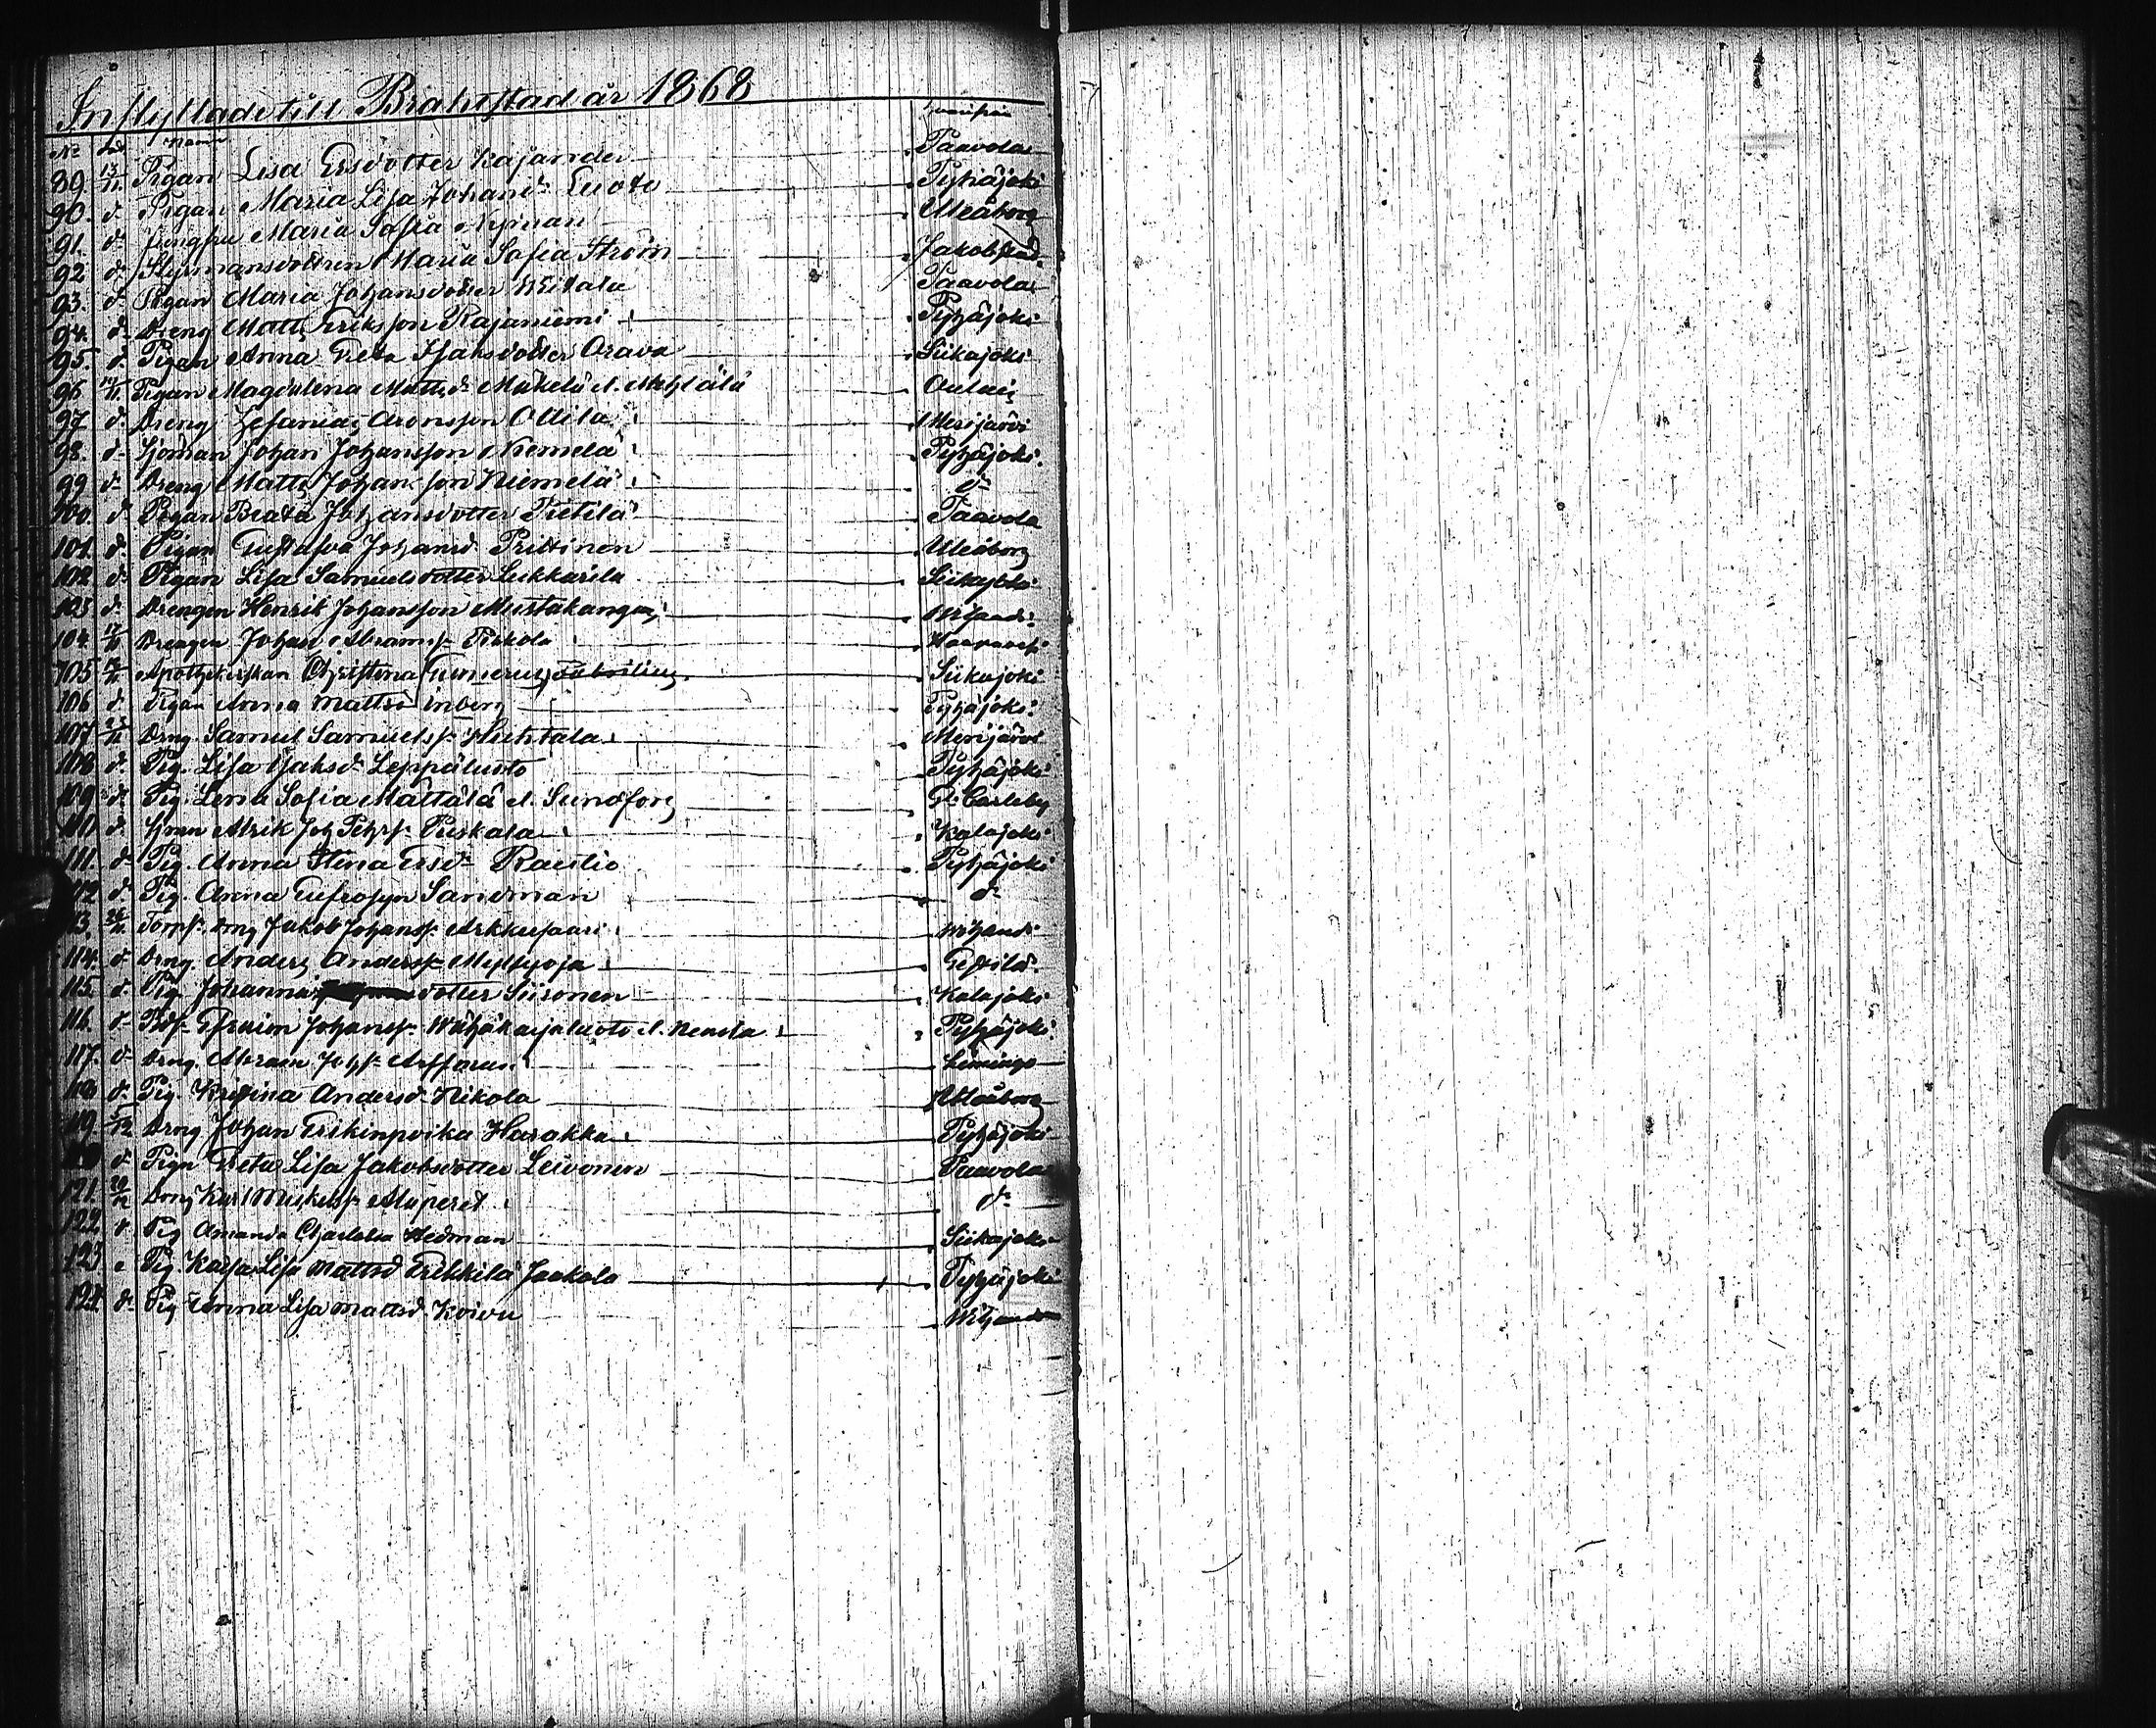 Inflyttade till Brahestad år 1868
No Dat Namn hvarifrån
89. 13/11 Pigan Lisa Ersdotter Kajander Paavola
90. d:o Pigan Maria Lisa Johansd: Luoto Pyhäjoki
91. d:o Jungfru Maria Sofia Nyman Uleåborg
92 d:o Styrmansdottren Maria Sofia Ström Jakobstad
93. d:o Pigan Maria Johansdotter Paavola
94. d:o Dreng Matts Eriksson Rajaniemi Pyhäjoki
95. d:o Pigan Anna Greta Isaksdotter Orava Siikajoki
96 Pigan Magdalena Matts d: Mäkelä l. Mehtälä Oulais
97 d:o Dreng Zefanias Aronsson Ollila Merijärvi
98. d:o Sjöman Johan Johansson Niemelä Pyhäjoki
99 d:o Dreng Matts Johansson Niemelä d:o
100. d:o Pigan Beata Johansdotter Pietilä Paavola
101. d:o Pigan Gustafva Johansd. Prittinen Uleåborg
102 d:o Pigan Lisa Samuelsdotter Lukkarila Siikajoki
103 d:o Drengen Henrik Johansson Mustakangas Vihandi
104. 17/11 Drengen Johan Abramss: Piskola
105 Apothekerskan Christina Siikajoki
106 d:o Pigan Anna Mattsd Inberg Pyhäjoki
107 Dreng. Samuel Samuelss: Huhtala Merijärvi
108 d:o Pig. Lisa Isaksd: Leppäluoto Pyhäjoki
109 d:o Pig. Lena Sofia Mattälä l. Sundfors G:Carleby
110 d:o Sjman Alrik Joh Pehrs: Puskala Kalajoki
111. d:o Pig. Anna Stina Ersd: Rautio Pyhäjoki
112 d:o Pig. Anna Eufrosyn Sandman d:o
113. Torps: drng Jakob Johanss: Arkkusaari Wihandi
114. d:o Drng. Anders Anderss: Myllyoja Gestilä
115. d:o Pig Johanna dotter Siironen Kalajoki
116. d:o Bds: Efraim Johanss: Wähäkarjaluoto l. Pyhäjoki
117. d:o Drng. Abram Johs: Limingo
118 d:o Pig Kristina Andersd: Nikola Uleåborg
119. Drng Johan Erikinpoika Harakka Pyhäjoki
120 d:o Pign Greta Lisa Jakobsdotter Leivonen Paavola
121. Drng Karl Mickelss: Alaperet d:o
122. d:o Pig Amanda Charlotta Hedman Siikajoki
123 Pig. Kaisa Lisa Mattsd Erkkilä Jaakola Pyhäjoki
124. d:o Pig Anna Lisa Mattsd. Koivu Wihandi